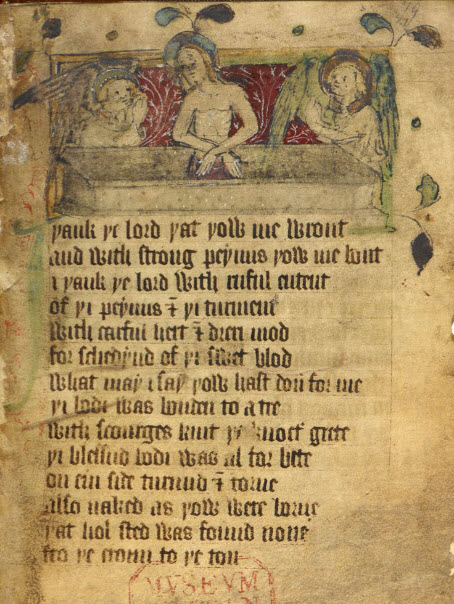 yank ye lord yat yow me wrout
and with strong peynus yow me bout
i yank ye lord with ruful entent
of yi peynus & yi turment
With carful hert & dreri mod
for schedynd of yi swet blod
What may i say yow hast don for me
yi bodi was bonden to a tre
With scourges knut ye knoct grete
yi blessud bodi was al for bete
on ein side turnud & torne
also naked as yow were borne
yat hol sted was found none
fro ye croun to ye ton
MVSEVM